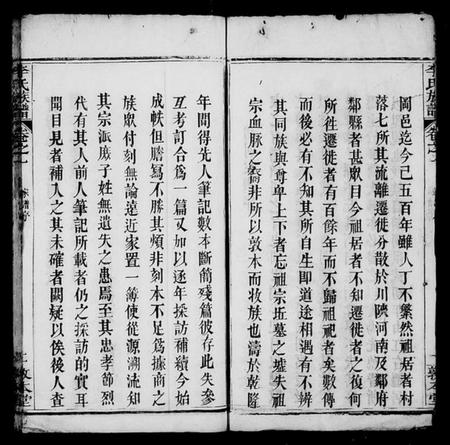 岡邑迄今已五百年雖人丁不繁然祖居者村
落七所其流離遷徙分散於川陜河南及鄰府
鄰縣者甚眾曰今祖居者不知遷徙者之復何
所徃遷徙者有百餘年而不歸祖祖者矣數傳
而後必有不知其所自生即道途相遇有不辨
其同族與尊卑上下者忘祖宗坵墓之墟失祖
宗血脉之 非所以敦本而收族也濤於乾隆
年間得先人筆記數本斷簡殘篇彼存此失參
互考訂合爲一篇又如以逐年採訪補續今始
成帙但謄寫不勝其煩非刻本不足爲據商之
族眾付刻無論遠近家置一簿使從源溯流知
其宗派庶子姓無遺失之患焉至其忠孝節烈
代有其人前人筆記所載者仍之採訪的實耳
聞目見者補入之其未確者闕疑以俟後人查
李氏族譜
卷之一
敦本堂